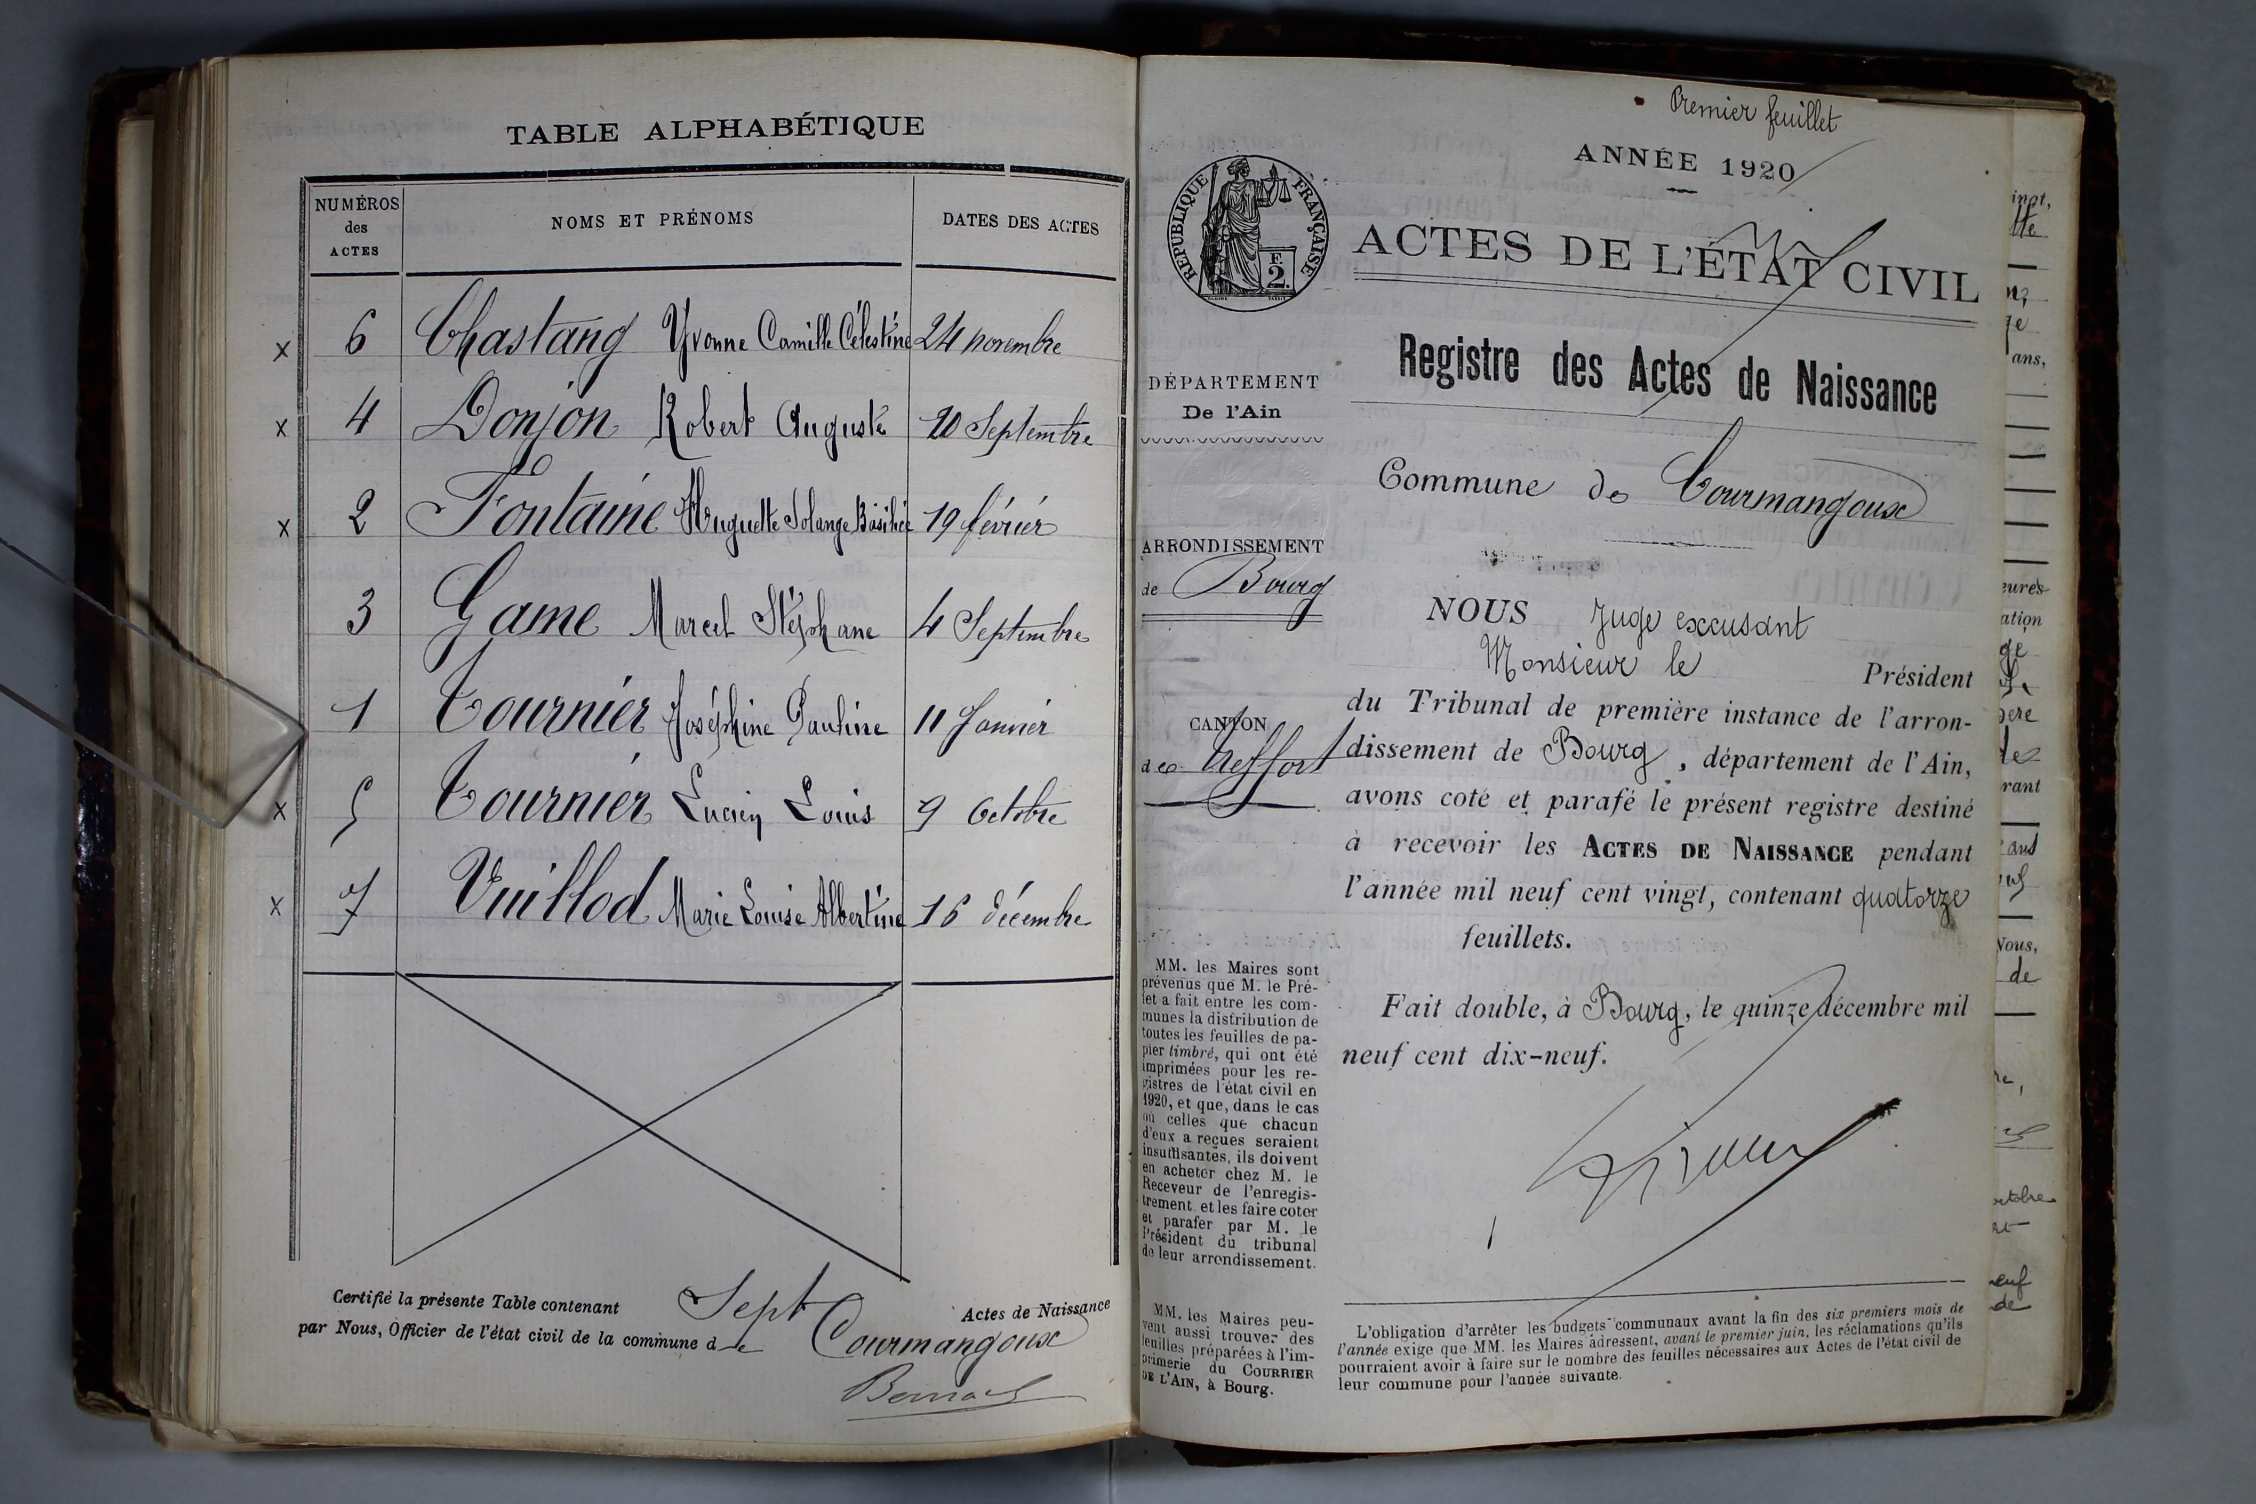 TABLE ALPHABÉTIQUE
NUMÉROS des ACTES
NOMS ET PRÉNOMS
DATES DES ACTES
x 6 Chastang Yvonne Camille Célestine 24 novembre
x 4 Donjon Robert Auguste 20 Septembre
x 2 Fontaine Huguette Solange 19 février
3 Game Marcel Stéphane 4 Septembre
1 Tournier Joséphine Pauline 11 Janvier
x 5 Tournier Lucien Louis 9 Octobre
x 7 Vuillod Marie Louise Albertine 16 décembre
Certifié la présente Table contenant Sept Actes de Naissance
par Nous, Officier de l'état civil de la commune de Courmangoux
Premier feuillet
ANNÉE 1920
RÉPUBLIQUE FRANÇAISE
F. 2.
ACTES DE L'ÉTAT CIVIL
Registre des Actes de Naissance
DÉPARTEMENT
De l'Ain
Commune de Courmangoux
ARRONDISSEMENT
de Bourg
CANTON
de Treffort
NOUS Juge excusant
Monsieur le Président
du Tribunal de première instance de l'arron-
dissement de Bourg, département de l'Ain,
avons coté et parafé le présent registre destiné
à recevoir les ACTES DE NAISSANCE pendant
l'année mil neuf cent vingt, contenant quatorze
feuillets.
Fait double, à Bourg, le quinze décembre mil
neuf cent dix-neuf.
MM. les Maires sont
prévenus que M. le Pré-
fet a fait entre les com-
munes la distribution de
toutes les feuilles de pa-
pier timbré, qui ont été
imprimées pour les re-
gistres de l'état civil en
1920, et que, dans le cas
où celles que chacun
d'eux a reçues seraient
insuffisantes, ils doivent
en acheter chez M. le
Receveur de l'enregis-
trement et les faire coter
et parafer par M. le
Président du tribunal
de leur arrondissement.
MM. les Maires peu-
vent aussi trouver des
feuilles préparées à l'im-
primerie du COURRIER
DE L'AIN, à Bourg.
L'obligation d'arrêter les budgets communaux avant la fin des six premiers mois de
l'année exige que MM. les Maires adressent, avant le premier juin, les réclamations qu'ils
pourraient avoir à faire sur le nombre des feuilles nécessaires aux Actes de l'état civil de
leur commune pour l'année suivante.